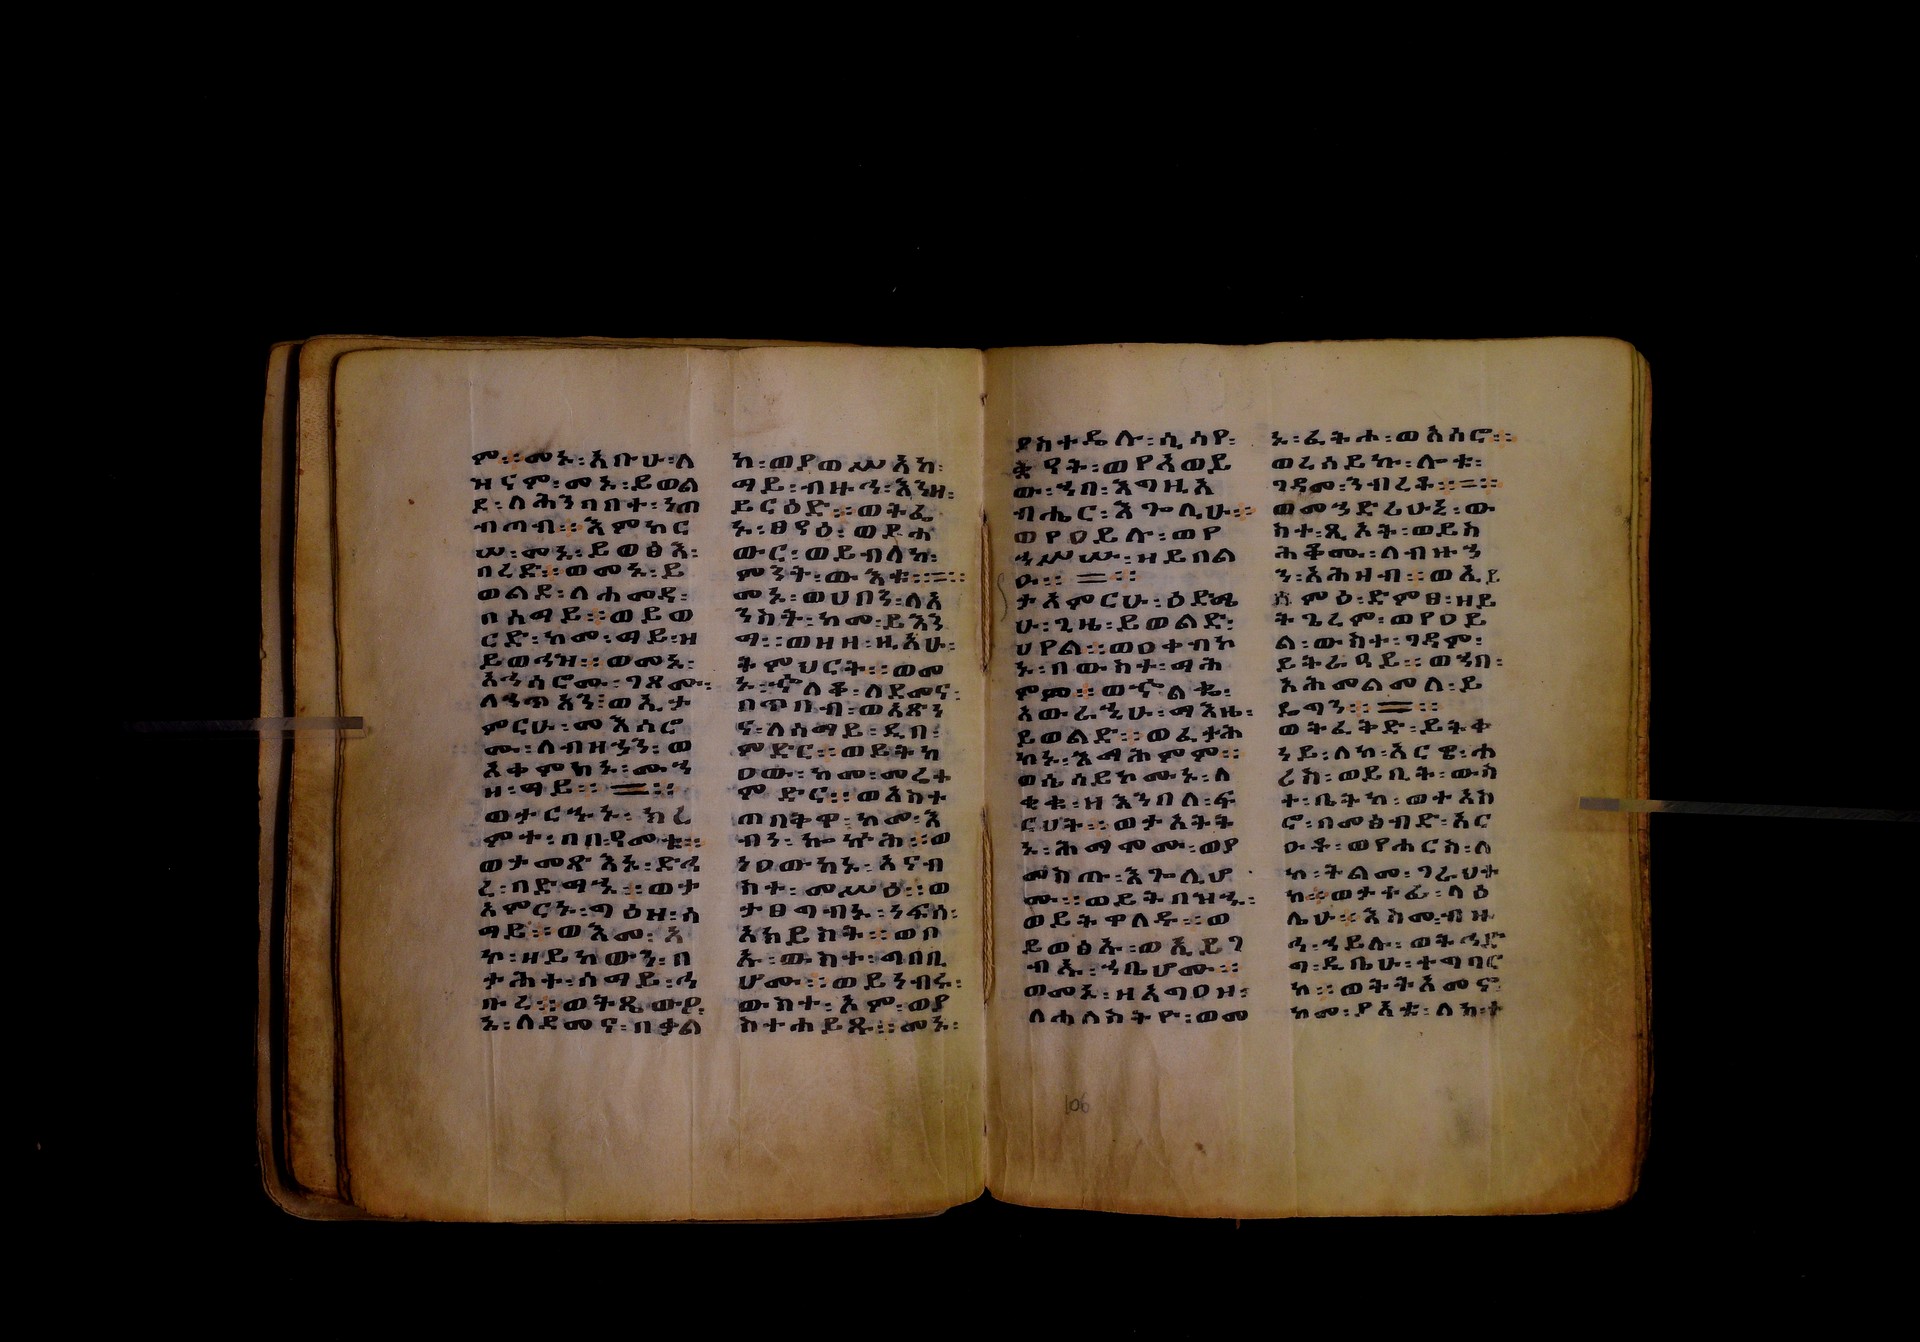 ም፡፡መኑ፡አቡሁ፡ለ
ዝናም፡መኑ፡ይወል
ደ፡ለሕንባበተ፡ነጠ
ብጣብ፡፡እምከር
ሠ፡መኑ፡ይወፅእ፡
በረድ፡፡ወመኑ፡ይ
ወልደ፡ለሐመዳ፡
በሰማይ፡፡ወይወ
ርድ፡ከመ፡ማይ፡ዘ
ይወኅዝ፡፡ወመኑ፡
ለኀጥአን፡ወኢታ
ምርሁ፡መአሰሮ
ሙ፡ለብዘኅን፡ወ
አቀምከኑ፡ሙኀ
ዘ፡ማይ፡፡
ወታርኁኑ፡ክረ
ምተ፡በበዓመቱ፡፡
ወታመጽእኑ፡ድኅ
ረ፡በድማኁ፡፡ወታ
አምርኑ፡ግዕዘ፡ሰ
ማይ፡፡ወእመ፡አ
ኮ፡ዘይከውን፡በ
ታሕተ፡ሰማይ፡ኅ
ቡረ፡፡ወትጼውዖ
ኑ፡ለዳመና፡በቃል
ከ፡ወያወሥአከ፡
ማይ፡ብዙኅ፡እንዘ፡
ይርዕድ፡፡ወትፌ
ኑ፡ፀዓዕ፡ወይሐ
ውር፡ወይብለከ፡
ምንት፡ውእቱ፡፡
መኑ፡ወሀበን፡ለአ
ንስት፡ከመ፡ይእን
ማ፡፡ወዘዘ፡ዚአሁ፡
ትምህርት፡፡ወመ
ኑ፡ኆለቆ፡ለደመና፡
በጥበብ፡ወአጽነ
ና፡ለሰማይ፡ዲበ፡
ምድር፡፡ወይትከ
ዐው፡ከመ፡መሬተ
ምድር፡፡ወአስተ
ጠበትዋ፡ከመ፡እ
ብን፡ኰኵሕ፡፡ወ
ነዐውከኑ፡አናብ
ስተ፡መሥዕ፡፡ወ
ታፀግብኑ፡ነፍሰ፡
አክይስት፡፡ወቦ
ኡ፡ውስተ፡ግበቢ
ሆሙ፡፡ወይነብሩ፡
ውስተ፡አም፡ወያ
ስተሐይጹ፡፡መኑ፡
ያስተዴሉ፡ሲሳየ፡
ቋዓት፡ወየአወይ
ው፡ኀበ፡እግዚአ
ብሔር፡እጐሊሁ፡፡
ወየዐይሉ፡ወየ
ኀሥሡ፡ዘይበል
ዑ፡፡
ታአምርሁ፡ዕድሜ
ሁ፡ጊዜ፡ይወልድ፡
ሀየል፡፡ወዐቀብኮ
ኑ፡በውስተ፡ማሕ
ምም፡፡ወኆልቌ፡
አውራኂሁ፡ማእዜ፡
ይወልድ፡፡ወፈታሕ
ከኑ፡እማሕምም፡፡
ወሲሳይኮሙኑ፡ለ
ቂቁ፡ዘእንበለ፡ፍ
ርሀት፡፡ወታአትት
ኑ፡ሕማሞሙ፡ወያ
መስጡ፡እጐሊሆ
ሙ፡፡ወይትበዝኁ፡
ወይትዋለዱ፡፡ወ
ይወፅኡ፡ወኢይገ
ብኡ፡ኀቤሆሙ፡፡
ወመኑ፡ዘአግዐዞ፡
ለሐለስትዮ፡ወመ
ኑ፡ፈትሐ፡ወአሰሮ፡፡
ወረሰይኩ፡ሎቱ፡
ገዳመ፡ንብረቶ፡፡
ወመኅድሪሁኒ፡ው
ስተ፡ጼኦት፡ወይስ
ሕቆሙ፡ለብዙኅ
ን፡አሕዛብ፡፡ወኢይ
ሰምዕ፡ድምፀ፡ዘይ
ትጌረም፡ወየዐይ
ል፡ውስተ፡ገዳም፡
ይትራዓይ፡፡ወኀበ፡
አሕመልመለ፡ይ
ዴግን፡፡
ወትፈትድ፡ይትቀ
ነይ፡ለከ፡አርዌ፡ሐ
ሪስ፡ወይቢት፡ውስ
ተ፡ቤትከ፡ወተአስ
ሮ፡በመፅብድ፡አር
ዑቶ፡ወየሐርስ፡ለ
ከ፡ትልመ፡ገራህተ
ከ፡፡ወታተፊ፡ላዕ
ሌሁ፡፡እስመ፡ብዙ
ኅ፡ኀይሉ፡ወትኀድ
ግ፡ዲቤሁ፡ተግባር
ከ፡፡ወትትአመኖ
ከመ፡ያአቱ፡ለከ፡ተ
106